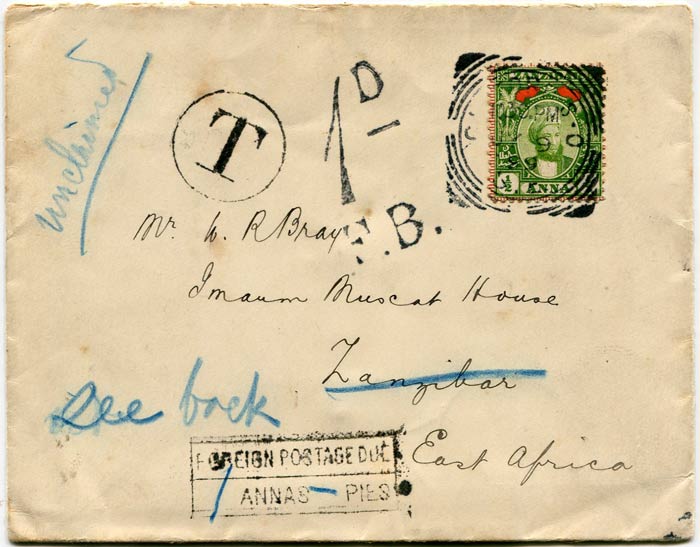 unclaimed
T
1D
F.B.
ZANZIBAR
PM
½ ANNA
Mr. W. R Bray
Imaum Muscat House
Zanzibar
See back
East Africa
FOREIGN POSTAGE DUE
1 ANNAS – PIES